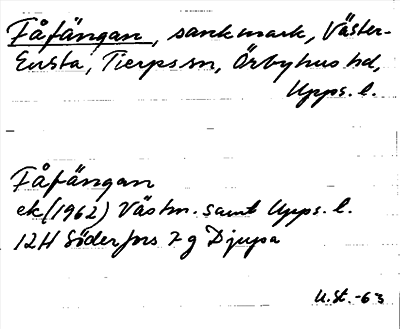 Fåfängan, sank mark, Väster-
Ensta, Tierps sn, Örbyhus hd,
Upps. l.
Fåfängan
ek (1962) Västm. samt Upps. l.
12H Söderfors 7 g Djupa
U.St. -63